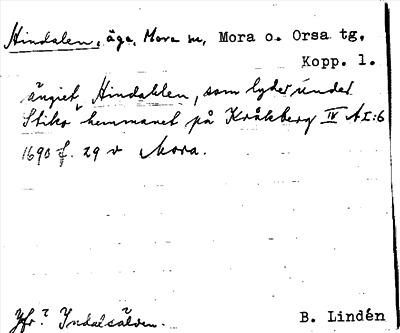 Hindalen, äga, Mora sn, Mora o. Orsa tg.
Kopp. l.
ängiet Hindahlen, som lyder under
Stiko hemmanet på Kråkberg IV A I:6
1690 f. 29 v Mora.
Jfr? Indalsälven.
B. Lindén